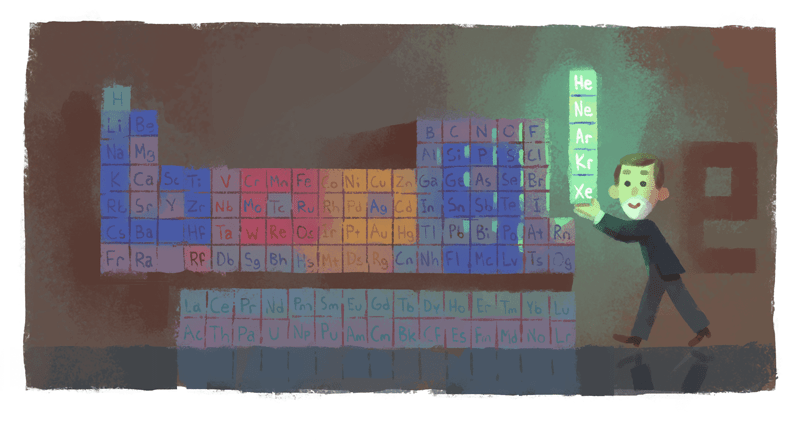 H He
Li Be B C N O F Ne
Na Mg Al Si P S Cl Ar
K Ca Sc Ti V Cr Mn Fe Co Ni Cu Zn Ga Ge As Se Br Kr
Rb Sr Y Zr Nb Mo Tc Ru Rh Pd Ag Cd In Sn Sb Te I Xe
Cs Ba Hf Ta W Re Os Ir Pt Au Hg Tl Pb Bi Po At Rn
Fr Ra Rf Db Sg Bh Hs Mt Ds Rg Cn Nh Fl Mc Lv Ts Og
La Ce Pr Nd Pm Sm Eu Gd Tb Dy Ho Er Tm Yb Lu
Ac Th Pa U Np Pu Am Cm Bk Cf Es Fm Md No Lr
e